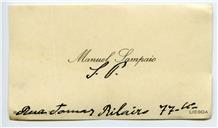 Manuel Sampaio
S. P.
Rua Tomaz Ribeiro 77-
LISBOA